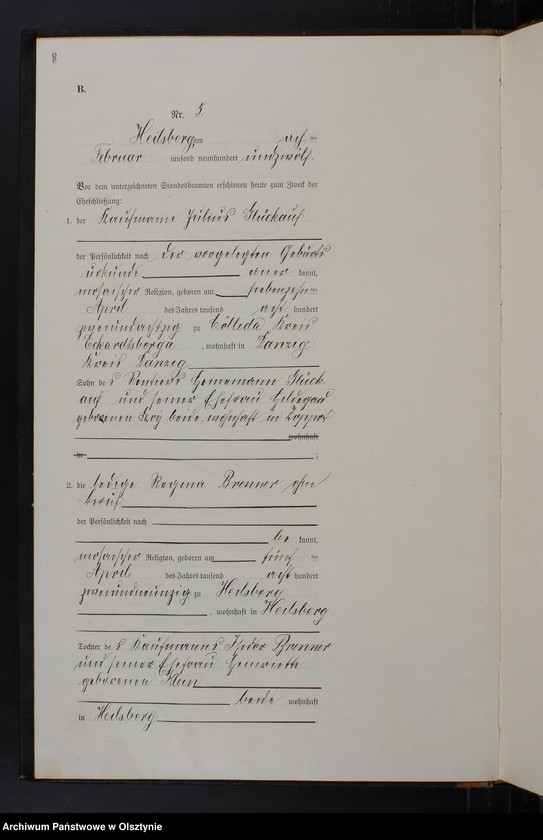 8
B.
Nr. 5.
Heilsberg, am acht ten
Februar tausend neunhundert undzwölf.
Vor dem unterzeichneten Standesbeamten erschienen heute zum Zweck der
Eheschließung:
1. der Kaufmann Julius Glückauf
der Persönlichkeit nach der vorgelegten Geburts
urkunde aner kannt,
mosaischer Religion, geboren am siebenzehn ten
April des Jahres tausend acht hundert
zweiundachtzig zu Cölleda, Kreis
Eckardtsberga, wohnhaft in Danzig
Kreis Danzig
Sohn des Rentiers Heinemann Glück
auf und seiner Ehefrau Hildegard
geborenen beide wohnhaft in Zoppot
wohnhaft
in ;
2. die ledige Regina Brenner ohne
Beruf
der Persönlichkeit nach
be kannt,
mosaischer Religion, geboren am fünf ten
April des Jahres tausend acht hundert
zweiundneunzig zu Heilsberg
, wohnhaft in Heilsberg
Tochter des Kaufmanns Isidor Brenner
und seiner Ehefrau Henriette
geborenen
beide wohnhaft
in Heilsberg .
Archiwum Państwowe w Olsztynie